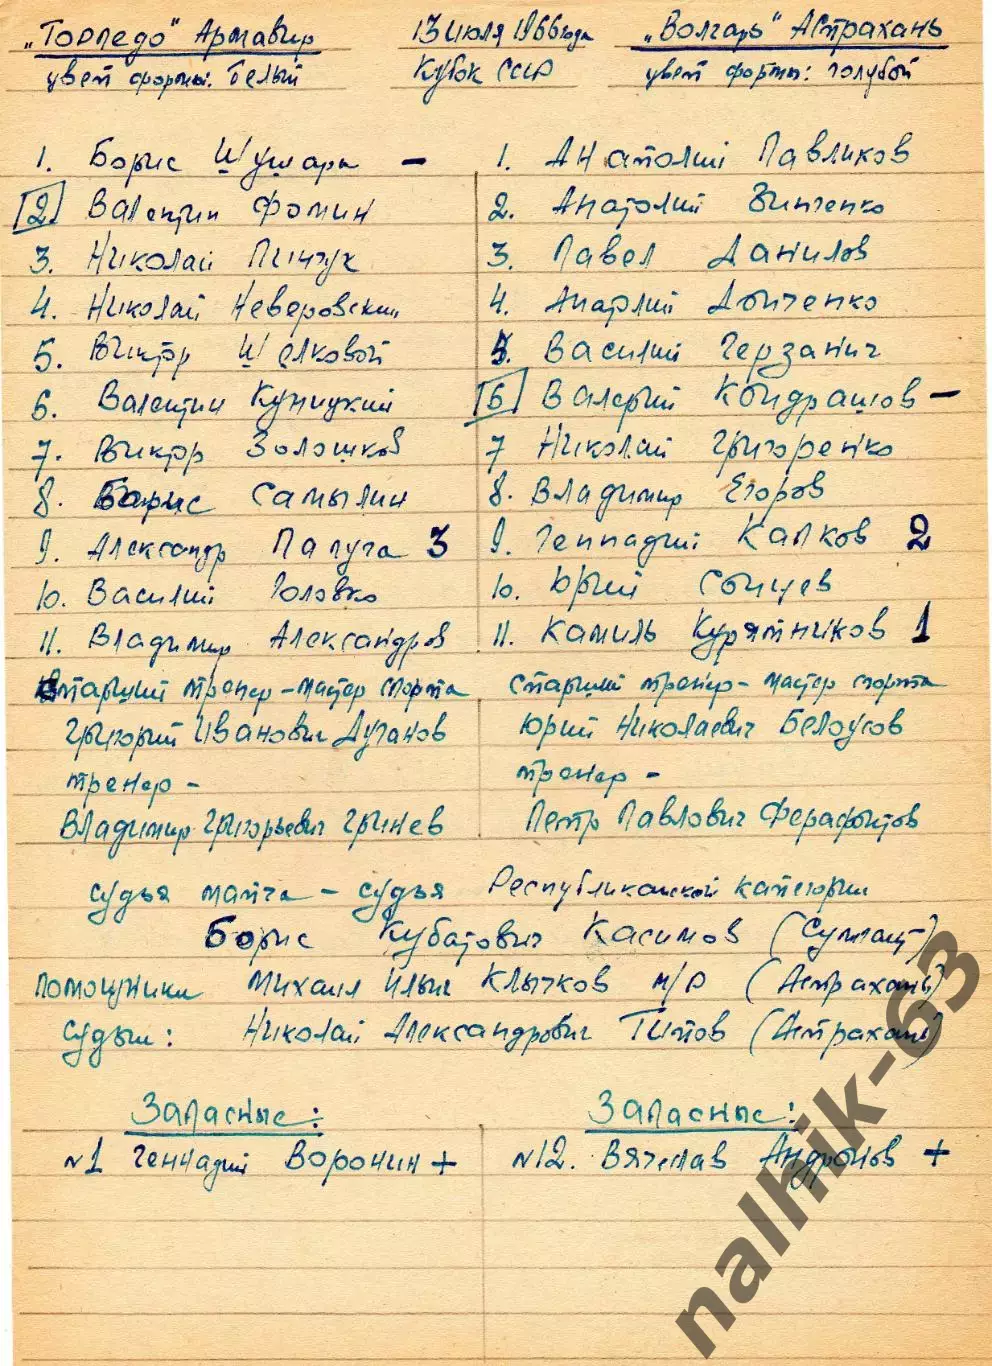 „Торпедо" Армавир 13 июля 1966 года „Волгарь" Астрахань
цвет формы: белый Кубок СССР цвет формы: голубой
1. Борис Шушара – 1. Анатолий Павликов
2 Валентин Фомин 2. Анатолий Зинченко
3. Николай Пинчук 3. Павел Данилов
4. Николай Неверовский 4. Анатлий Донченко
5. Виктор Шелковой 5. Василий Герзанич
6. Валентин Куницкий 6 Валерий Кондрашов –
7. Виктор Золошков 7 Николай Григоренко
8. Борис Самылин 8. Владимир Егоров
9. Александр Папуга 3 9. Геннадий Капков 2
10. Василий Головко 10. Юрий Сонцев
11. Владимир Александров 11. Камиль Курятников 1
старший тренер – мастер спорта старший тренер – мастер спорта
Григорий Иванович Дуганов Юрий Николаевич Белоусов
тренер – тренер –
Владимир Григорьевич Гринев Петр Павлович Ферафонтов
судья матча – судья Республиканской категории
Борис Кубатович Касимов (Сумгаит)
помощники Михаил Ильич Клычков м/р (Астрахань)
судьи: Николай Александрович Титов (Астрахань)
Запасные: Запасные:
№1 Геннадий Воронин + №12. Вячеслав Андронов +
nalhik-63